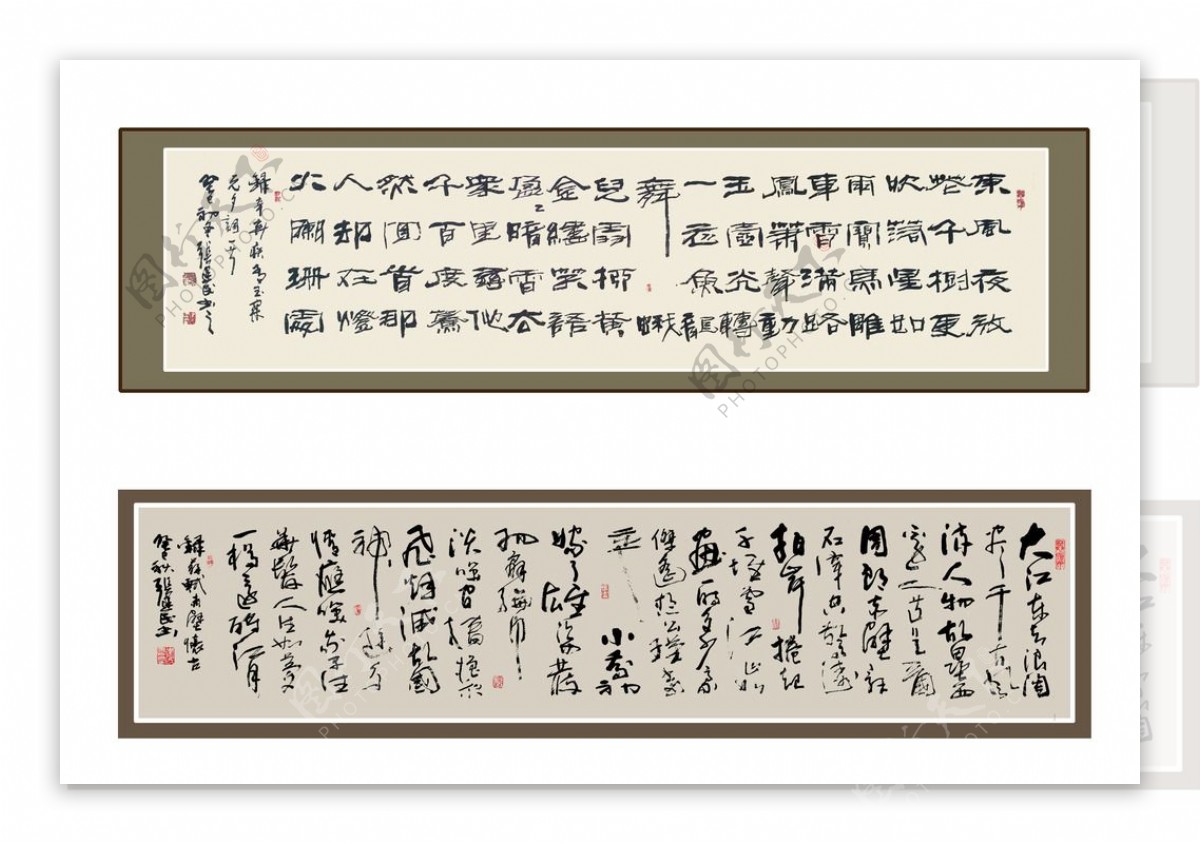 東風夜放
花千樹更
吹落星如
雨寶馬雕
車香滿路
鳳簫聲動
玉壺光轉
一夜魚龍
舞蛾
兒雪柳黃
金縷笑語
盈〻暗香去
眾里尋他
千百度驀
然回首那
人却在燈
火闌珊處
錄辛棄疾青玉案
元夕詞一首
大江東去浪淘
盡千古風
流人物故壘西
邊人道是三國
周郎赤壁亂
石穿空驚濤
拍岸捲起
千堆雪江山如
畫一時多少豪
傑遙想公瑾當
年小喬初
嫁了雄姿英發
羽扇綸巾
談笑間檣櫓
飛灰煙滅故國
神遊多
情應笑我早生
華髮人生如夢
一樽還酹江月
錄蘇軾赤壁懷古
图行天下
PHOTOPHOTO.CN